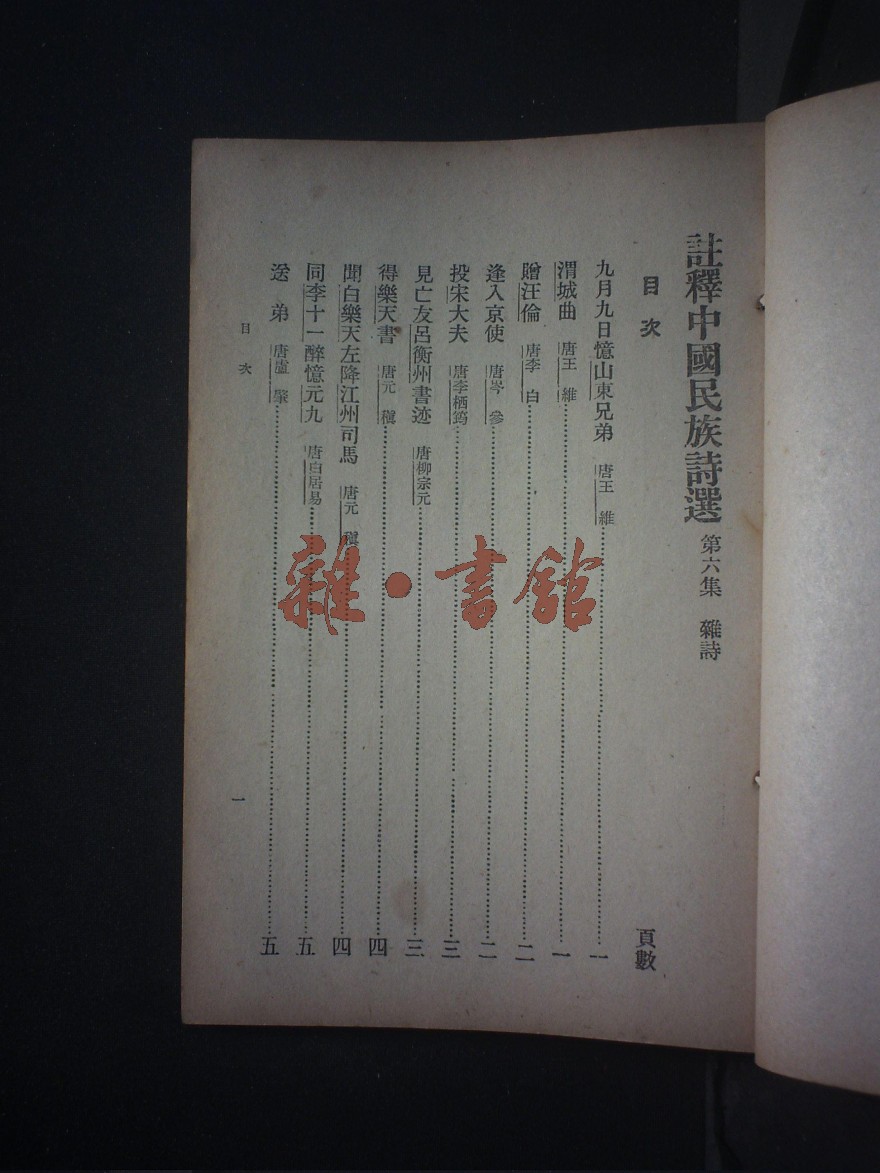 註釋中國民族詩選 第六集 雜詩
目次 頁數
九月九日憶山東兄弟 唐王維 一
渭城曲 唐王維 一
贈汪倫 唐李白 二
逢入京使 唐岑參 二
投宋大夫 唐李栖筠 三
見亡友呂衡州書迹 唐柳宗元 三
得樂天書 唐元稹 四
聞白樂天左降江州司馬 唐元稹 四
同李十一醉憶元九 唐白居易 五
送弟 唐盧肇 五
目次 一
雜·書館